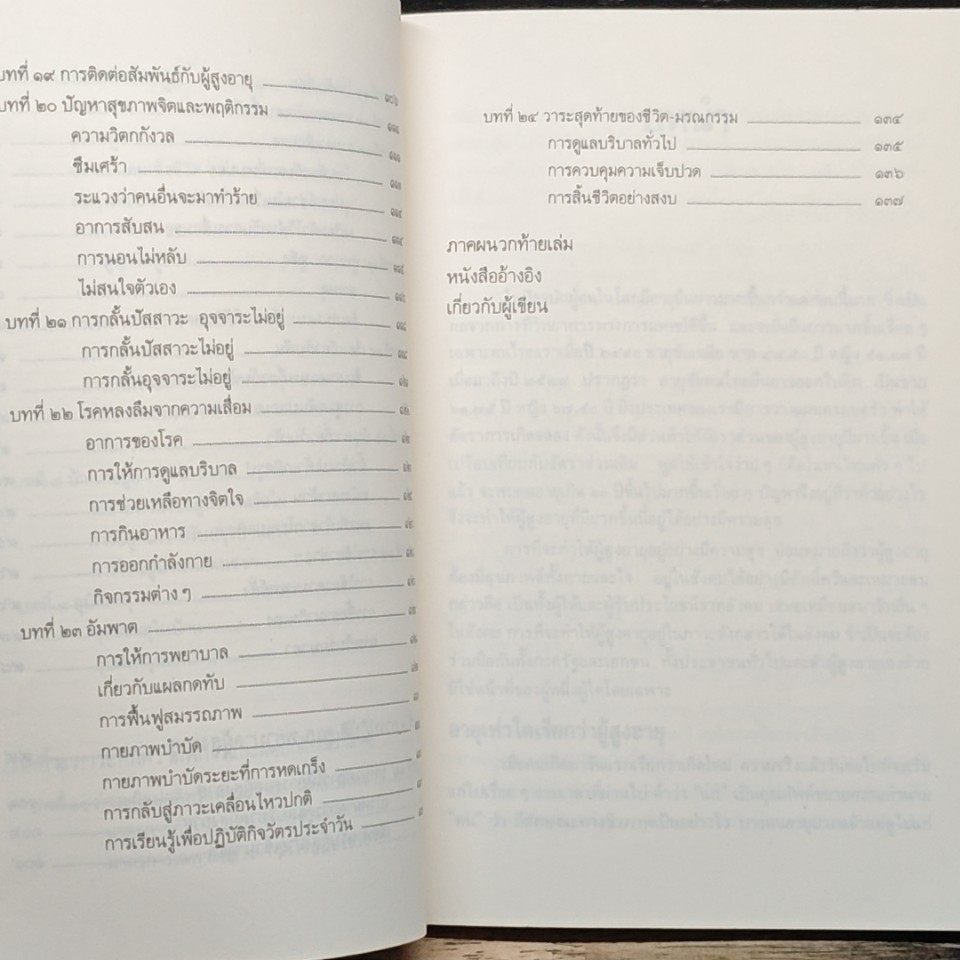 บทที่ ๑๙ การติดต่อสัมพันธ์กับผู้สูงอายุ ๑๐๖
บทที่ ๒๐ ปัญหาสุขภาพจิตและพฤติกรรม
ความวิตกกังวล
ซึมเศร้า
ระแวงว่าคนอื่นจะมาทำร้าย
อาการสับสน
การนอนไม่หลับ
ไม่สนใจตัวเอง
บทที่ ๒๑ การกลั้นปัสสาวะ อุจจาระไม่อยู่
การกลั้นปัสสาวะไม่อยู่
การกลั้นอุจจาระไม่อยู่
บทที่ ๒๒ โรคหลงลืมจากความเสื่อม
อาการของโรค
การให้การดูแลบริบาล
การช่วยเหลือทางจิตใจ
การกินอาหาร
การออกกำลังกาย
กิจกรรมต่าง ๆ
บทที่ ๒๓ อัมพาต
การให้การพยาบาล
เกี่ยวกับแผลกดทับ
การฟื้นฟูสมรรถภาพ
กายภาพบำบัด
กายภาพบำบัดระยะที่การหดเกร็ง
การกลับสู่ภาวะเคลื่อนไหวปกติ
การเรียนรู้เพื่อปฏิบัติกิจวัตรประจำวัน
บทที่ ๒๔ วาระสุดท้ายของชีวิต-มรณกรรม ๑๓๔
การดูแลบริบาลทั่วไป ๑๓๕
การควบคุมความเจ็บปวด ๑๓๖
การสิ้นชีวิตอย่างสงบ ๑๓๗
ภาคผนวกท้ายเล่ม
หนังสืออ้างอิง
เกี่ยวกับผู้เขียน